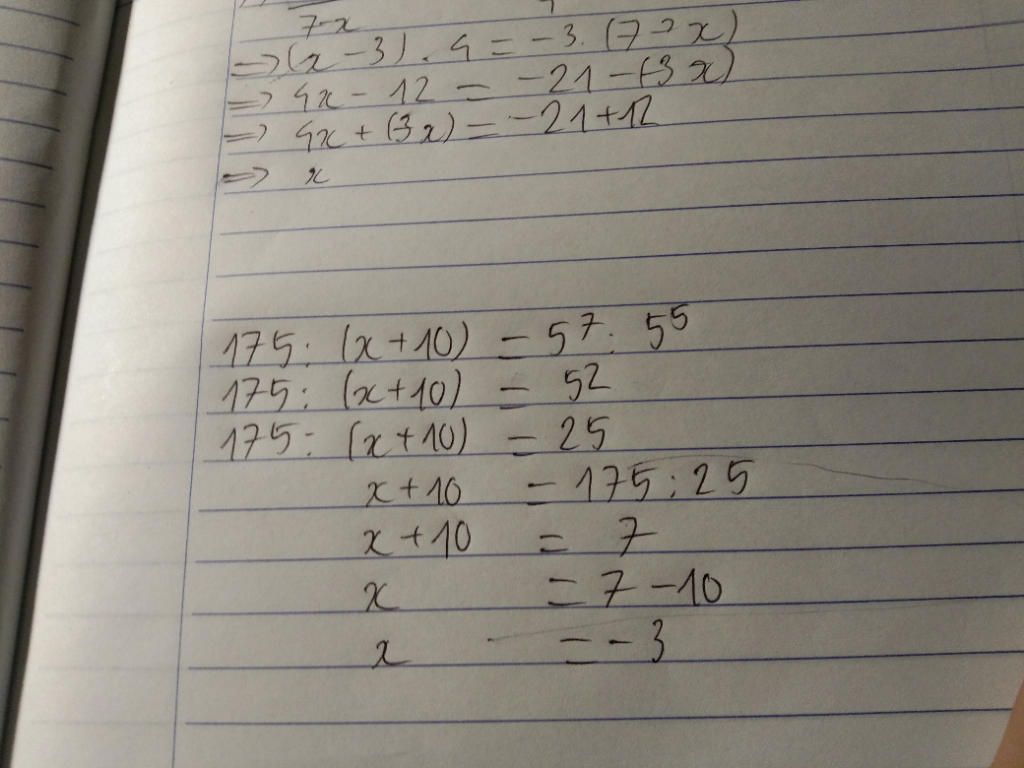 7-x
=> (x-3).4 = -3.(7-x)
=> 4x - 12 = -21-(-3x)
=> 4x+(3x) = -21+12
=> x
175: (x+10) = 5⁷: 5⁵
175: (x+10) = 5²
175: (x+10) = 25
x+10 = 175:25
x+10 = 7
x = 7-10
x = -3